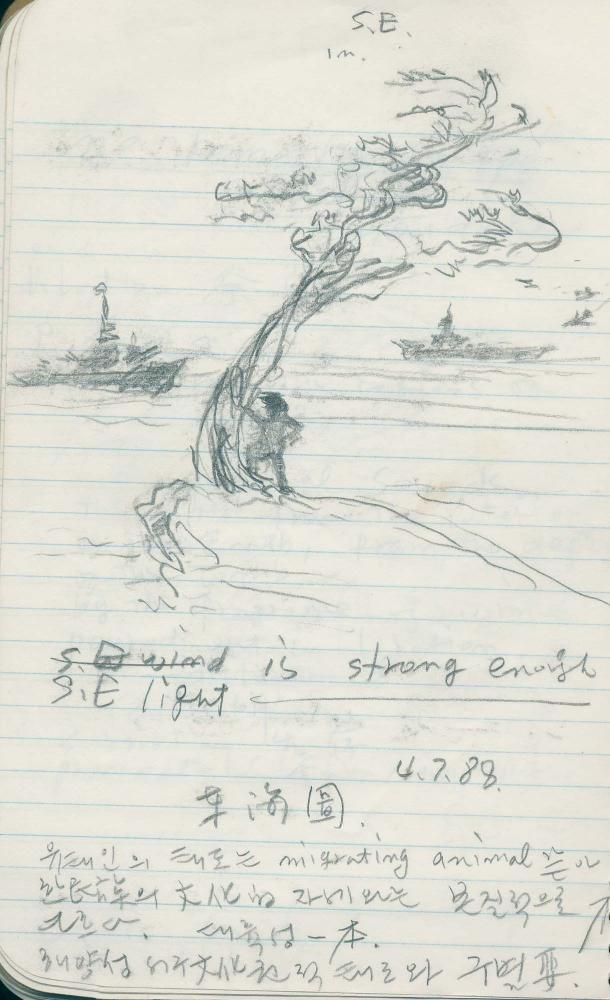 S.E.
in.
S.E wind is strong enough
S.E light
4.7.88.
東海圖.
유태인의 태도는 migrating animal
韓民族의 文化的 자세와는 本질적으로
다르다. 대륙성 一本.
해양성 文化 태도와 구별 要.